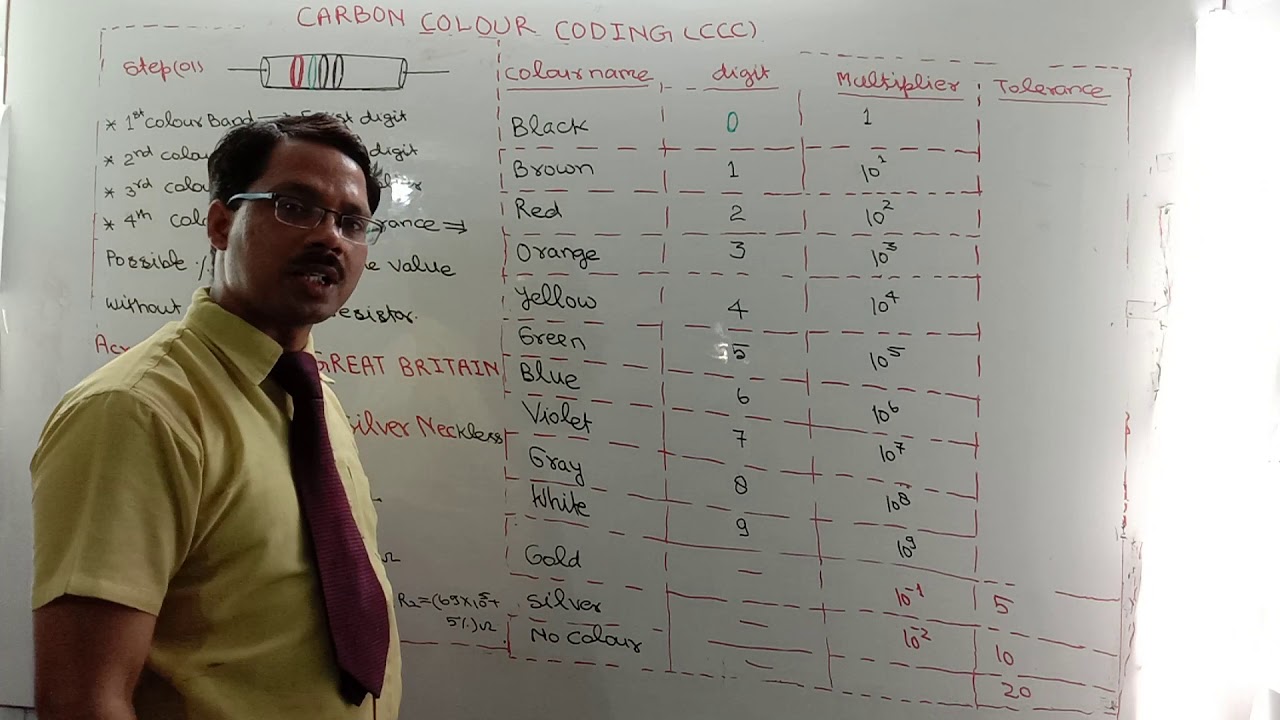 CARBON COLOUR CODING (CCC)
Step(01)
* 1st colour Band → First digit
* 2nd colou digit
* 3rd colou
* 4th colo rance ⇒
Possible % e value
without esistor.
GREAT BRITAIN
Silver Neckless
Ω
R2=(69×10^5+
5%)Ω
Colour name digit Multiplier Tolerance
Black 0 1
Brown 1 10^1
Red 2 10^2
Orange 3 10^3
Yellow 4 10^4
Green 5 10^5
Blue 6 10^6
Violet 7 10^7
Gray 8 10^8
White 9 10^9
Gold — 10^-1 5
Silver — 10^-2 10
No Colour — 20